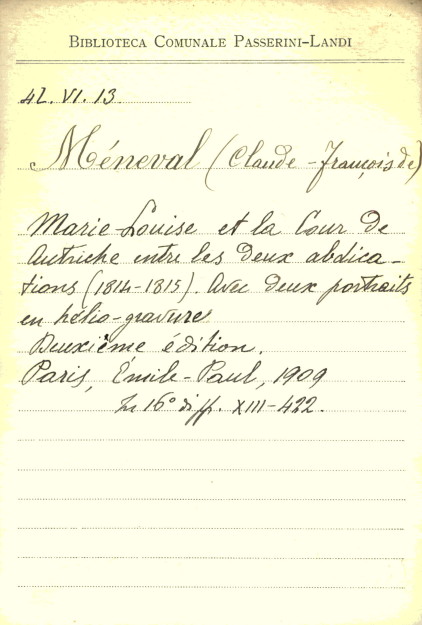 BIBLIOTECA COMUNALE PASSERINI-LANDI
4L.VI.13
Méneval (Claude-François de)
Marie-Louise et la Cour de
Autriche entre les deux abdica-
tions (1814-1815). Avec deux portraits
en hélio-gravure
Deuxième édition.
Paris, Émile-Paul, 1909
In 16° di pp. XIII-422.